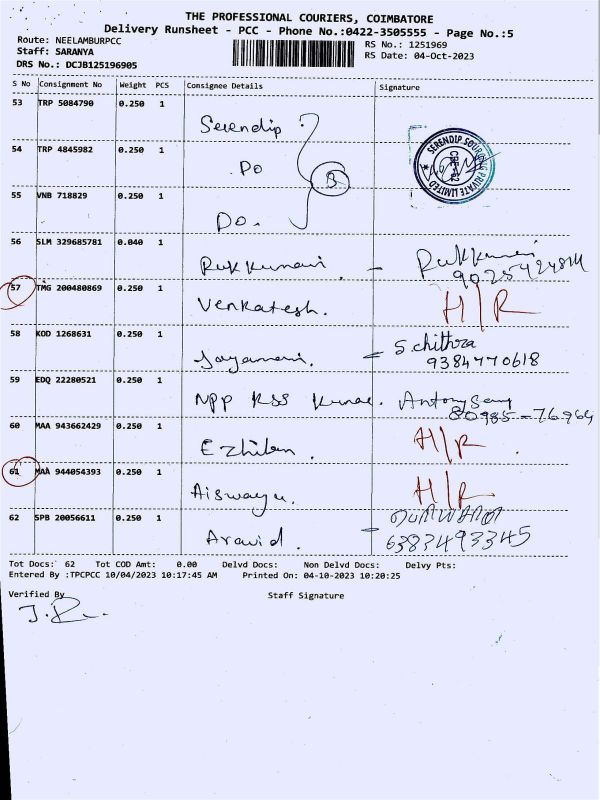 THE PROFESSIONAL COURIERS, COIMBATORE
Delivery Runsheet - PCC - Phone No.:0422-3505555 - Page No.:5
Route: NEELAMBURPCC
RS No.: 1251969
Staff: SARANYA
RS Date: 04-Oct-2023
DRS No.: DCJB125196905
S No Consignment No Weight PCS Consignee Details Signature
53 TRP 5084790 0.250 1
Serendip
54 TRP 4845982 0.250 1
Do
3
SERENDIP SOURCING PRIVATE LIMITED
55 VNB 718829 0.250 1
Do.
56 SLM 329685781 0.040 1
Rukkumani. -
57 TMG 200480869 0.250 1
Venkatesh. H/R
58 KOD 1268631 0.250 1
Jayamani. = S.chithra
9384770618
59 EDQ 22280521 0.250 1
NPP KSS Antony
80985-76964
60 MAA 943662429 0.250 1
Ezhilan. H/R
61 MAA 944054393 0.250 1
H/R
62 SPB 20056611 0.250 1
Aravid. =
6383493345
Tot Docs: 62 Tot COD Amt: 0.00 Delvd Docs: Non Delvd Docs: Delvy Pts:
Entered By :TPCPCC 10/04/2023 10:17:45 AM Printed On: 04-10-2023 10:20:25
Verified By Staff Signature